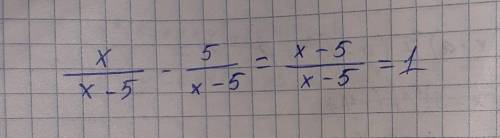 x/(x-5) - 5/(x-5) = (x-5)/(x-5) = 1